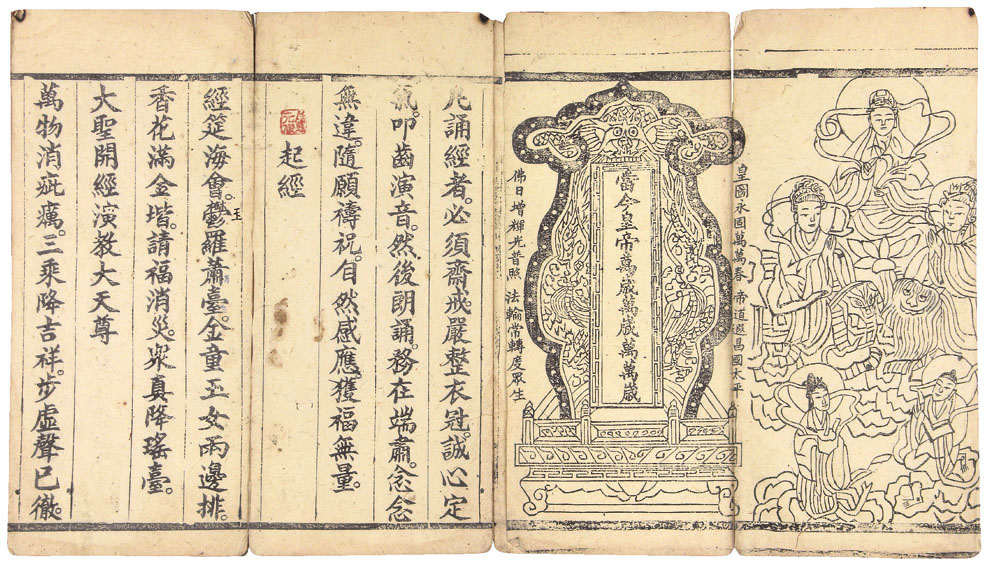 皇圖永固萬萬春 帝道遐昌國太平
當今皇帝萬歲萬歲萬萬歲
佛日增輝光普照 法輪常轉度眾生
凡誦經者。必須齋戒嚴整衣冠。誠心定
氣。叩齒演音。然後朗誦。務在端肅。念念
無違。隨願禱祝。自然感應。獲福無量。
起經
經筵海會。鬱羅蕭臺。金童玉女兩邊排。
香花滿金堦。請福消災。眾真降瑤臺。
大聖開經演教大天尊
萬物消疵癘。三乘降吉祥。步虛聲已徹。